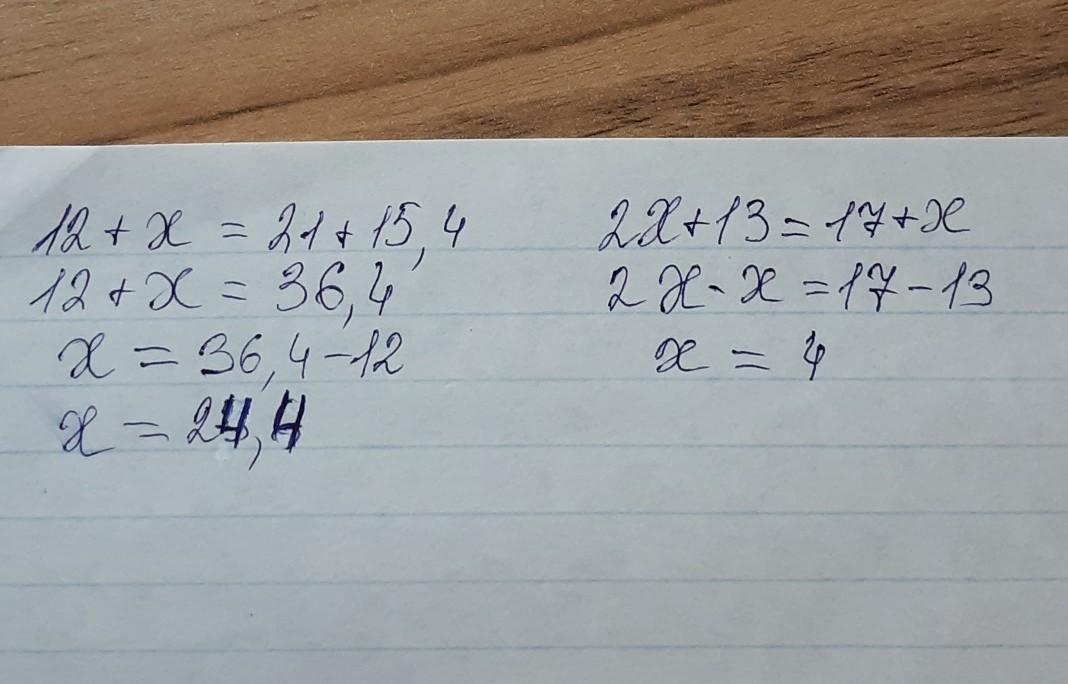 12 + x = 21 + 15,4
12 + x = 36,4
x = 36,4 - 12
x = 24,4
2x + 13 = 17 + x
2x - x = 17 - 13
x = 4